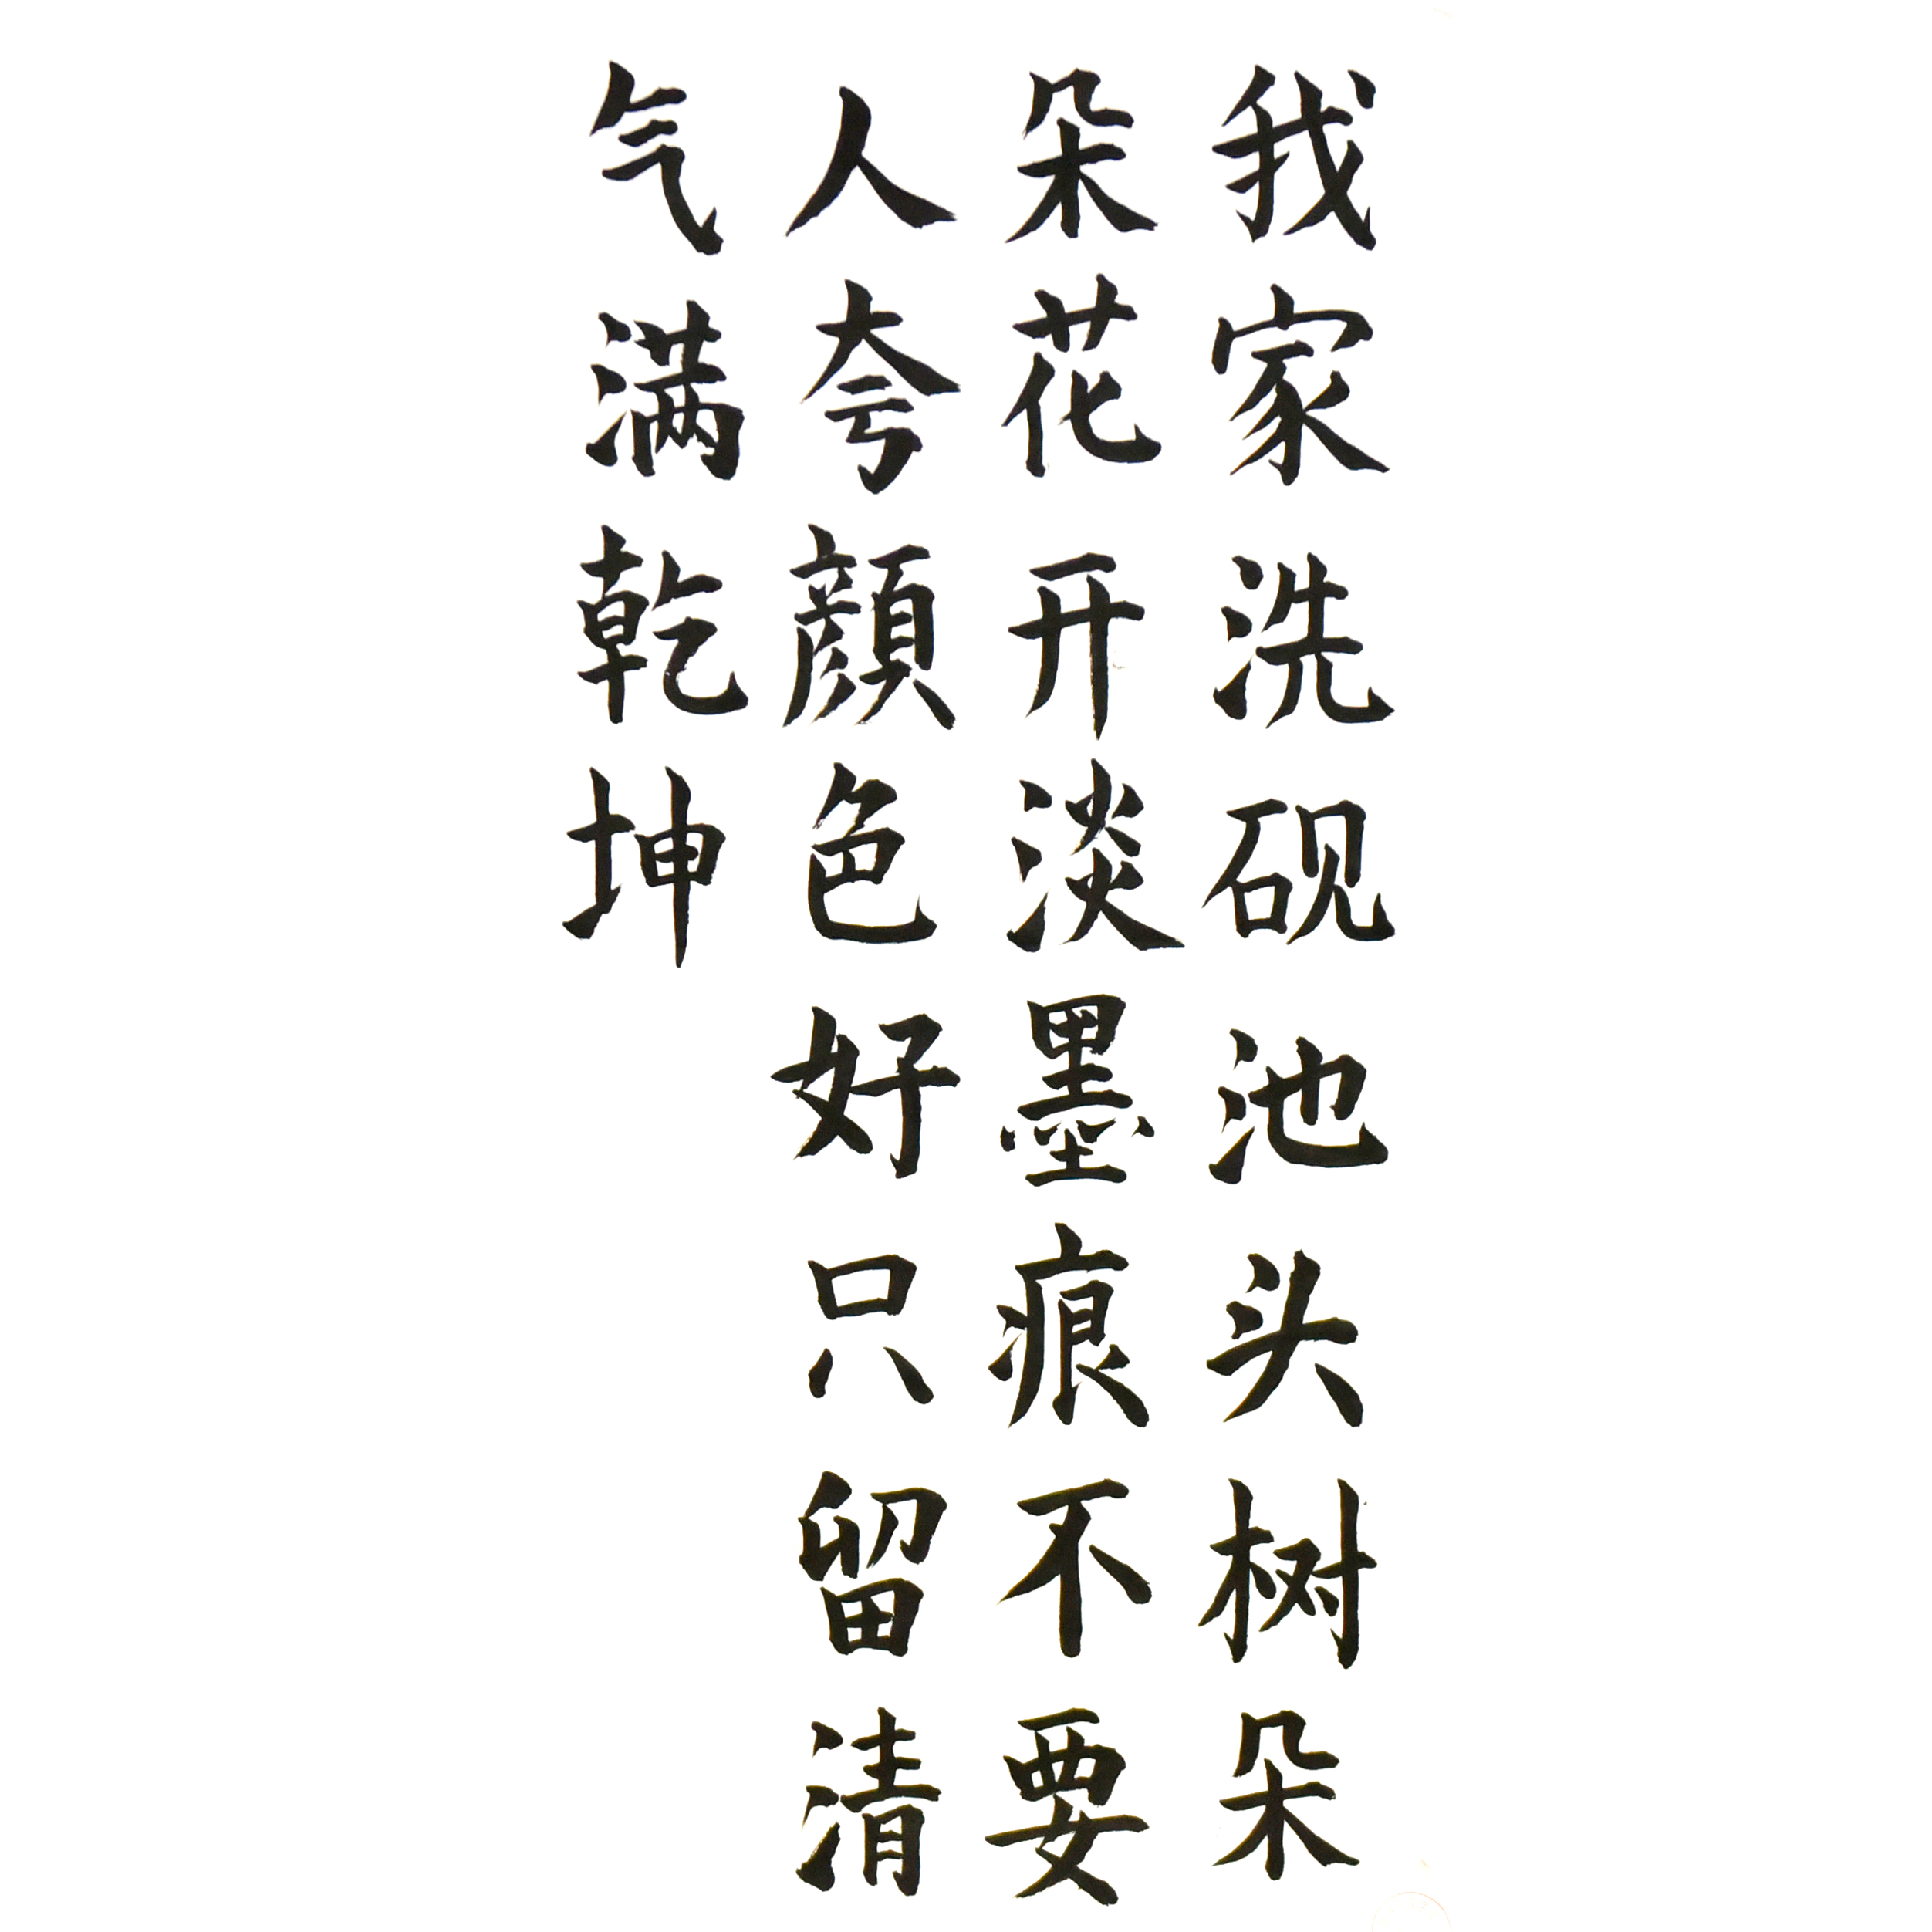 我家洗砚池头树朵
朵花开淡墨痕不要
人夸顔色好只留清
气满乾坤